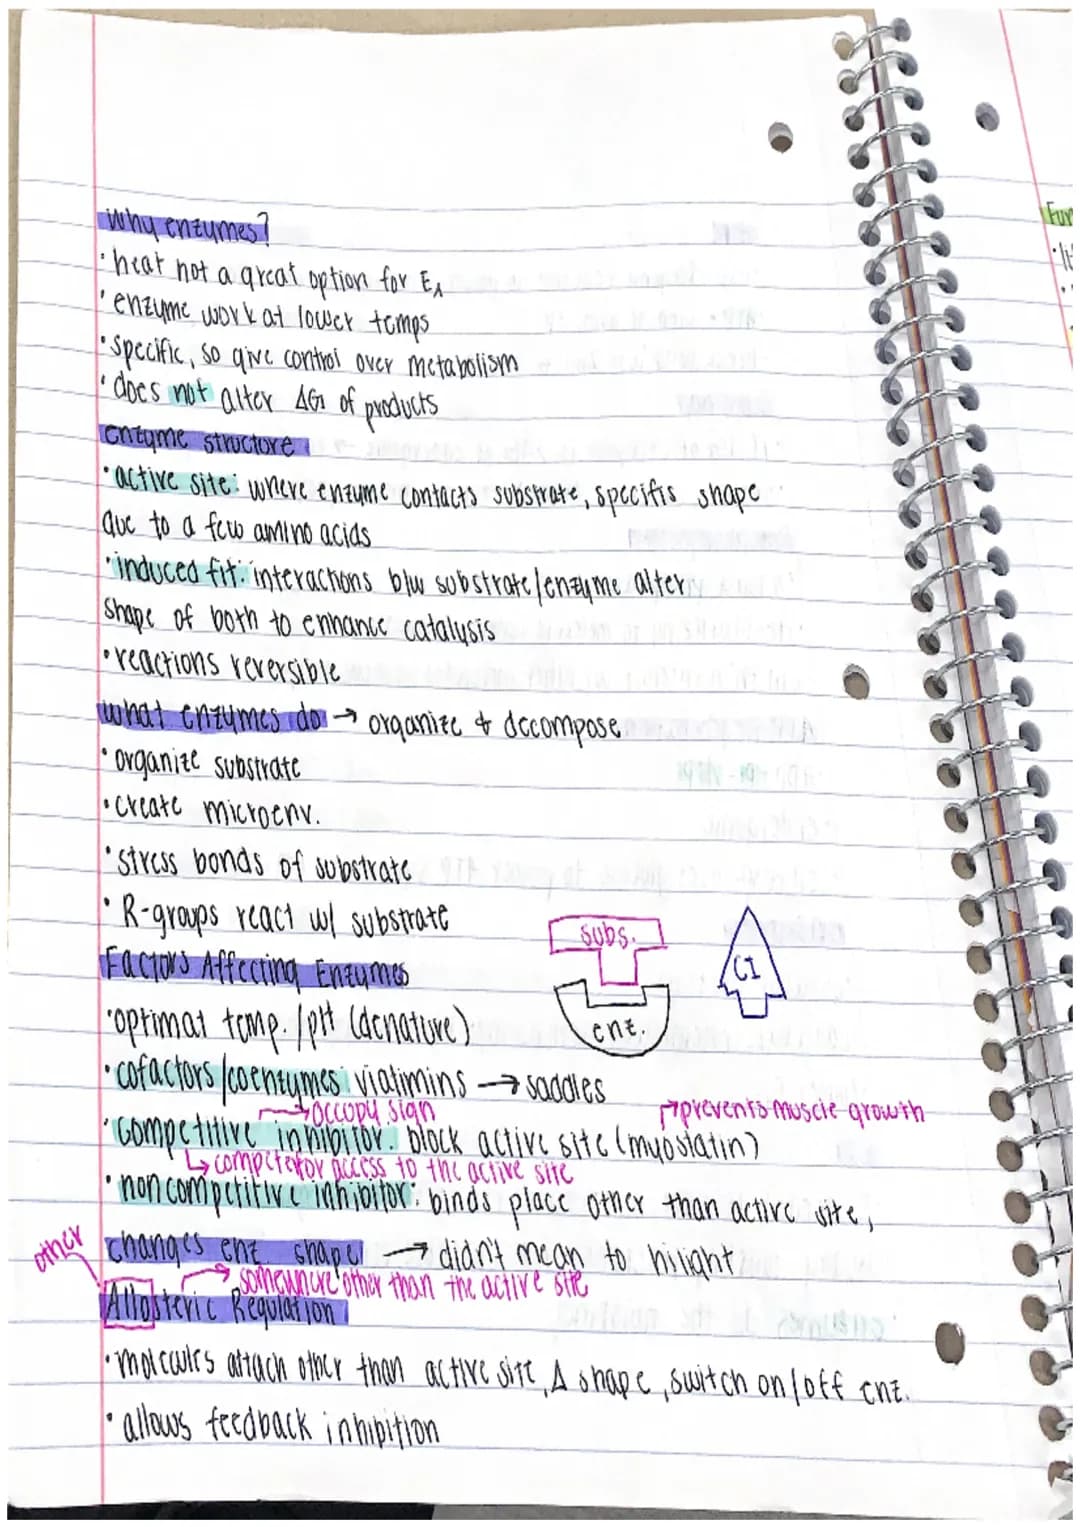 Why enzymes?
• heat not a great option for EA
• enzyme work at lower temps
• specific, so give control over metabolism
• does not alter ΔG of products
enzyme structure
• active site: where enzyme contacts substrate, specifis shape
due to a few amino acids
• induced fit: interactions b/w substrate/enzyme alter
shape of both to enhance catalysis
• reactions reversible
what enzymes do → organize & decompose
• organize substrate
• create microenv.
• stress bonds of substrate
• R-groups react w/ substrate
subs.
CI
enz.
Factors Affecting Enzymes
• optimal temp./pH (denature)
• cofactors/coenzymes: viatimins → saddles
→ occupy sign
→ prevents muscle growth
• competitive inhibitor: block active site (myostatin)
↳ compete for access to the active site
• noncompetitive inhibitor: binds place other than active site,
changes enz. shape → didn't mean to hilight
other
→ somewhere other than the active site
Allosteric Regulation
• molecules attach other than active site, Δ shape, switch on/off enz.
• allows feedback inhibition
Fun